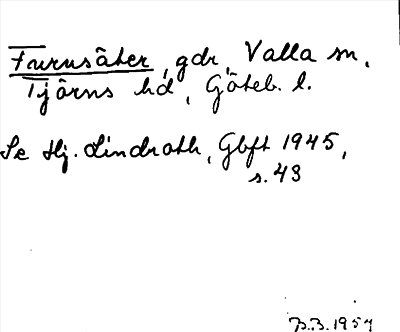 Furusäter, gdr, Valla sn,
Tjörns hd, Göteb. l.
Se Hj. Lindroth, Gbft 1945,
s. 43
B.B. 1957